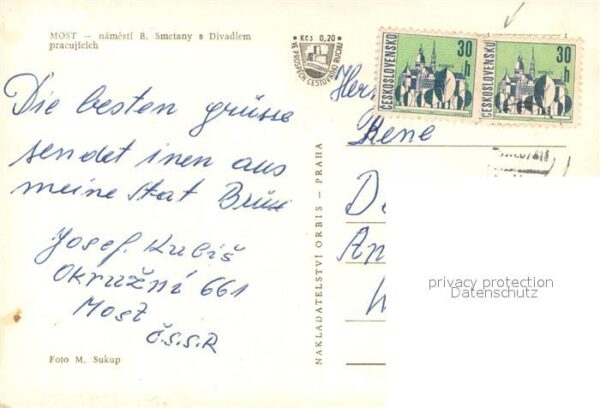 MOST — náměstí B. Smetany s Divadlem
pracujících
Kčs 0,20
VE PROSPĚCH CESTOVNÍHO RUCHU
ČESKOSLOVENSKO
30
h
ČESKOSLOVENSKO
30
h
Die besten grüsse
sendet inen aus
meine Stat Brüx
Josef Kubiš
Okružní 661
Most
Č.S.S.R
Foto M. Sukup
NAKLADATELSTVÍ ORBIS — PRAHA
Her
Rene
D
An
privacy protection
Datenschutz